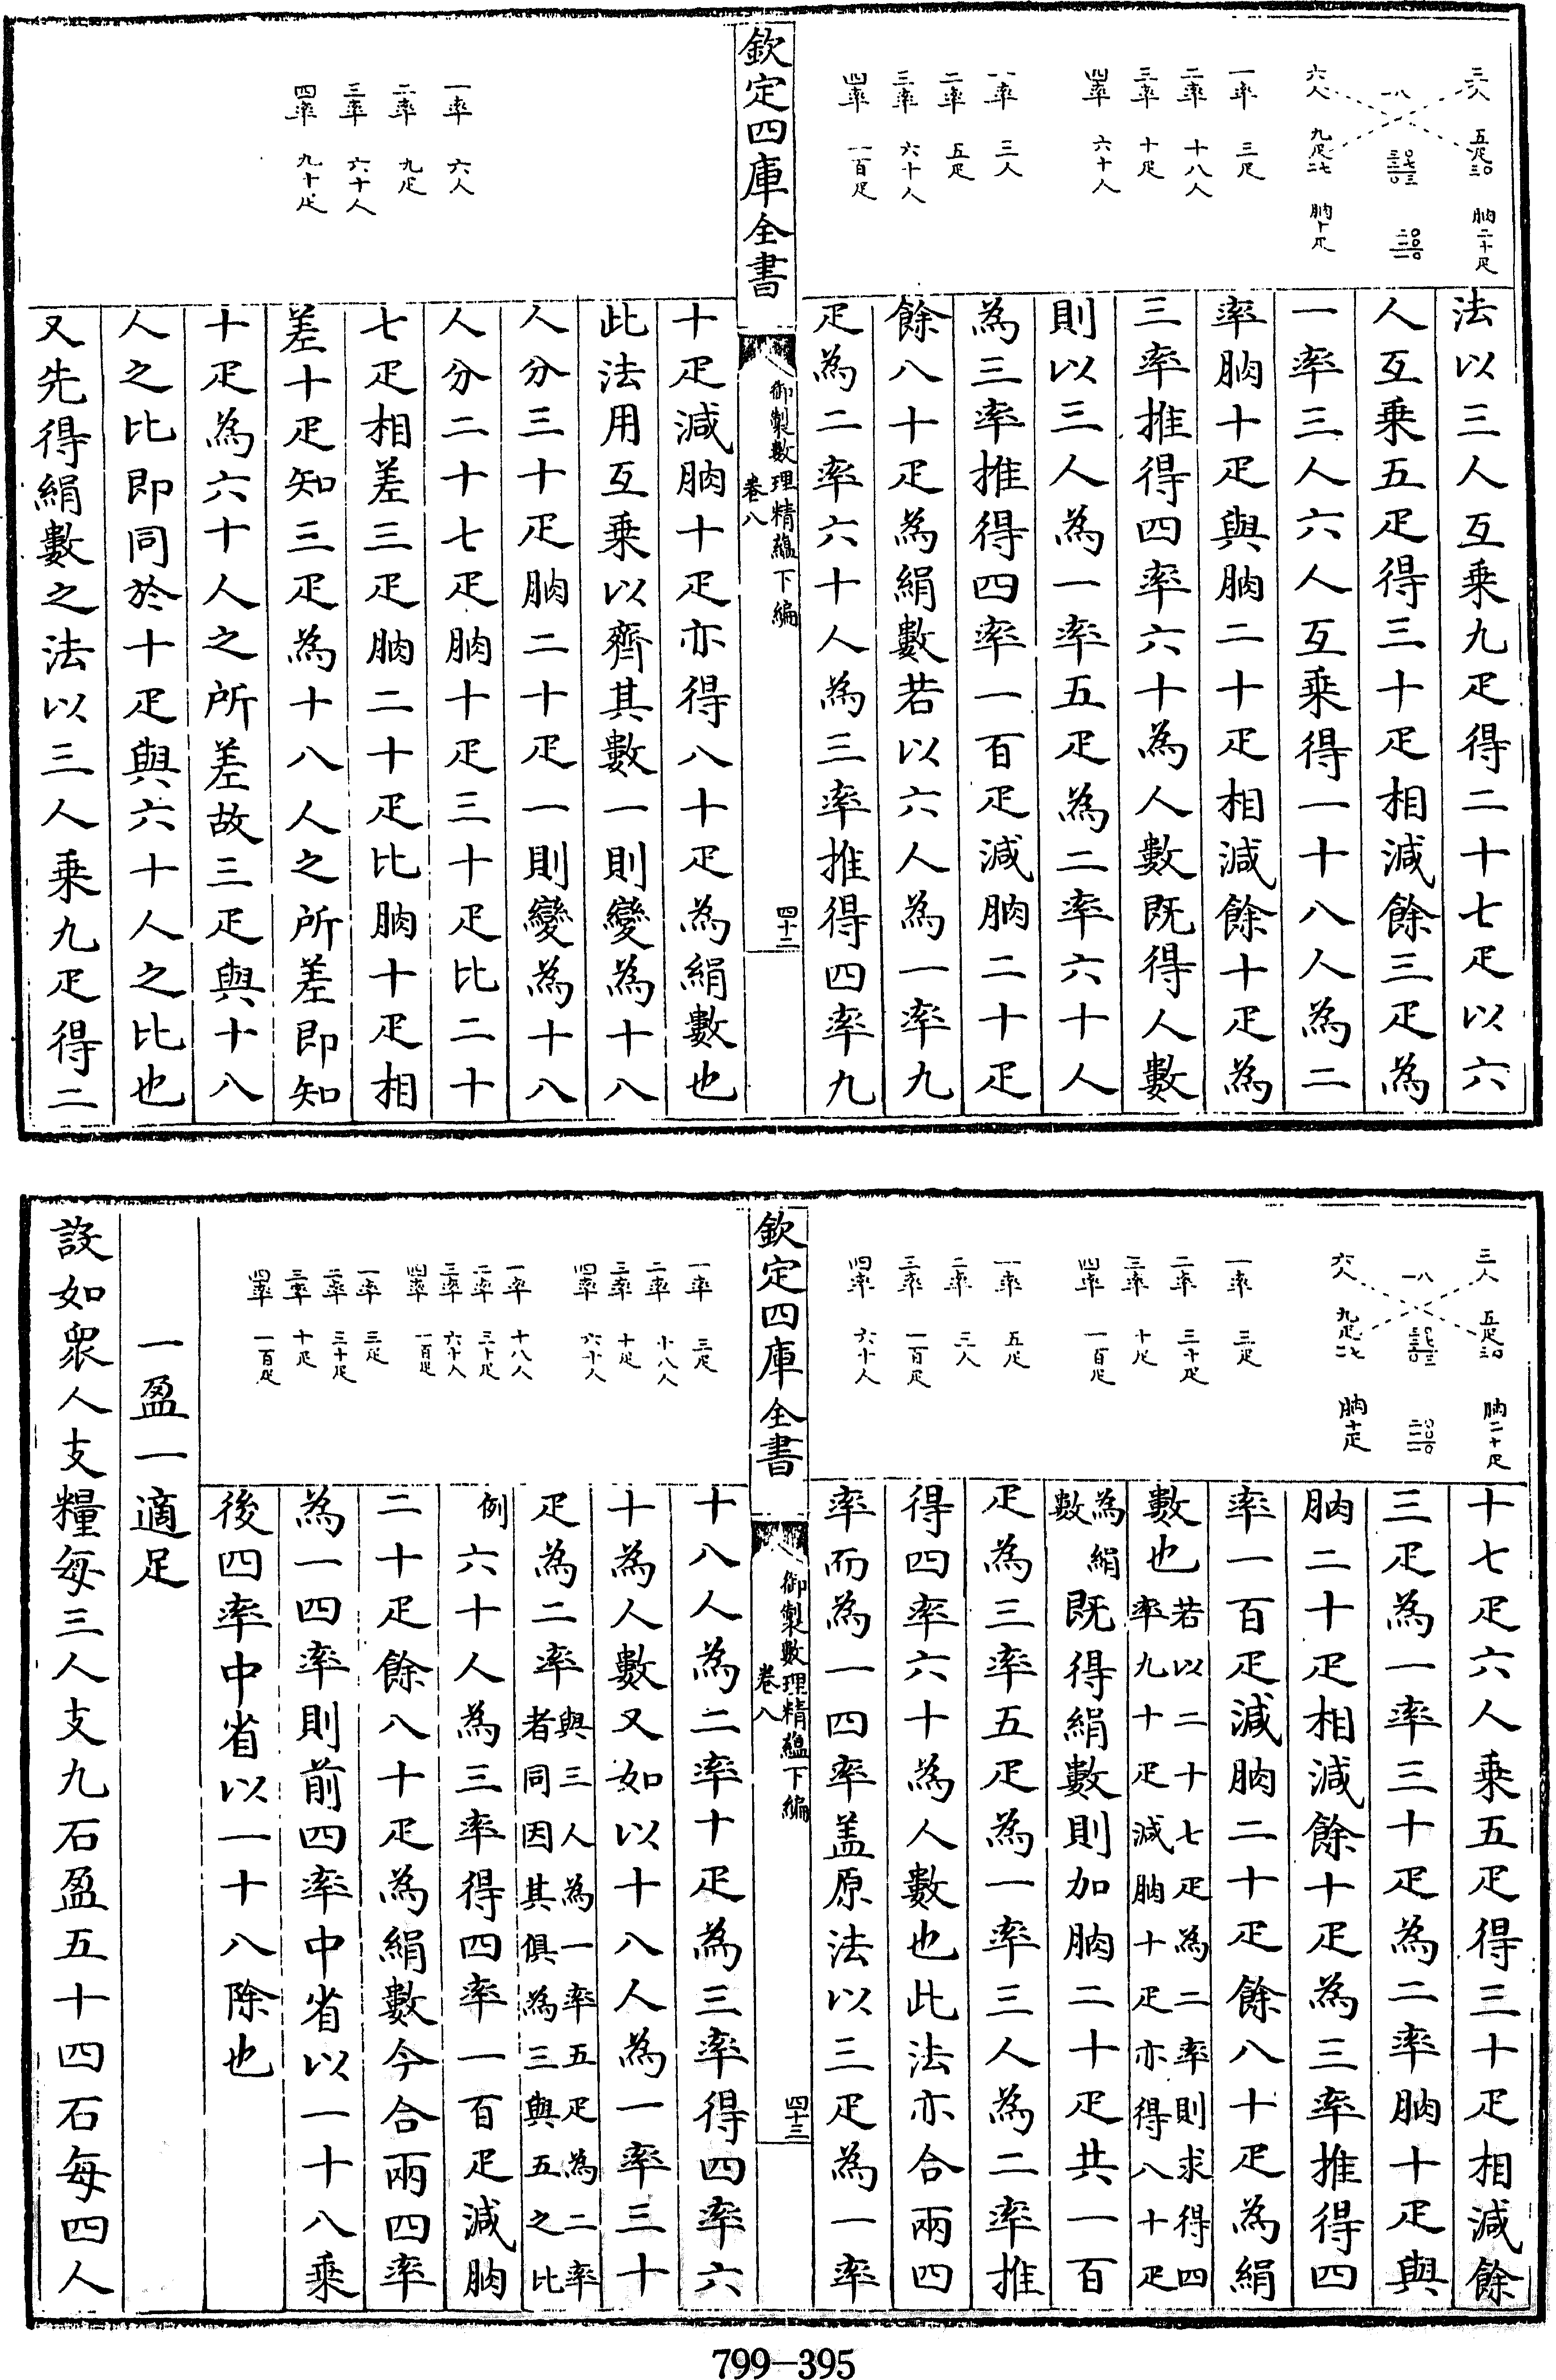 三人 五疋三〇 朒二十疋
一八
六人 九疋二七 朒十疋
一率 三疋
二率 十八人
三率 十疋
四率 六十人
一率 三人
二率 五疋
三率 六十人
四率 一百疋
法以三人互乘九疋得二十七疋以六
人互乘五疋得三十疋相減餘三疋為
一率三人六人互乘得一十八人為二
率朒十疋與朒二十疋相減餘十疋為
三率推得四率六十為人數既得人數
則以三人為一率五疋為二率六十人
為三率推得四率一百疋減朒二十疋
餘八十疋為絹數若以六人為一率九
疋為二率六十人為三率推得四率九
欽定四庫全書
御製數理精蘊下編
卷八
四十二
一率 六人
二率 九疋
三率 六十人
四率 九十疋
十疋減朒十疋亦得八十疋為絹數也
此法用互乘以齊其數一則變為十八
人分三十疋朒二十疋一則變為十八
人分二十七疋朒十疋三十疋比二十
七疋相差三疋朒二十疋比朒十疋相
差十疋知三疋為十八人之所差即知
十疋為六十人之所差故三疋與十八
人之比即同於十疋與六十人之比也
又先得絹數之法以三人乘九疋得二
三人 五疋三〇 朒二十疋
一八
六人 九疋二七 朒十疋
一率 三疋
二率 三十疋
三率 十疋
四率 一百疋
一率 五疋
二率 三人
三率 一百疋
四率 六十人
十七疋六人乘五疋得三十疋相減餘
三疋為一率三十疋為二率朒十疋與
朒二十疋相減餘十疋為三率推得四
率一百疋減朒二十疋餘八十疋為絹
數也若以二十七疋為二率則求得四
率九十疋減朒十疋亦得八十疋
為絹
數
既得絹數則加朒二十疋共一百
疋為三率五疋為一率三人為二率推
得四率六十為人數也此法亦合兩四
率而為一四率蓋原法以三疋為一率
欽定四庫全書
御製數理精蘊下編
卷八
四十三
一率 三疋
二率 十八人
三率 十疋
四率 六十人
一率 十八人
二率 三十疋
三率 六十人
四率 一百疋
一率 三疋
二率 三十疋
三率 十疋
四率 一百疋
十八人為二率十疋為三率得四率六
十為人數又如以十八人為一率三十
疋為二率與三人為一率五疋為二率
者同因其俱為三與五之比
例六十人為三率得四率一百疋減朒
二十疋餘八十疋為絹數今合兩四率
為一四率則前四率中省以一十八乘
後四率中省以一十八除也
一盈一適足
設如眾人支糧每三人支九石盈五十四石每四人
799-395